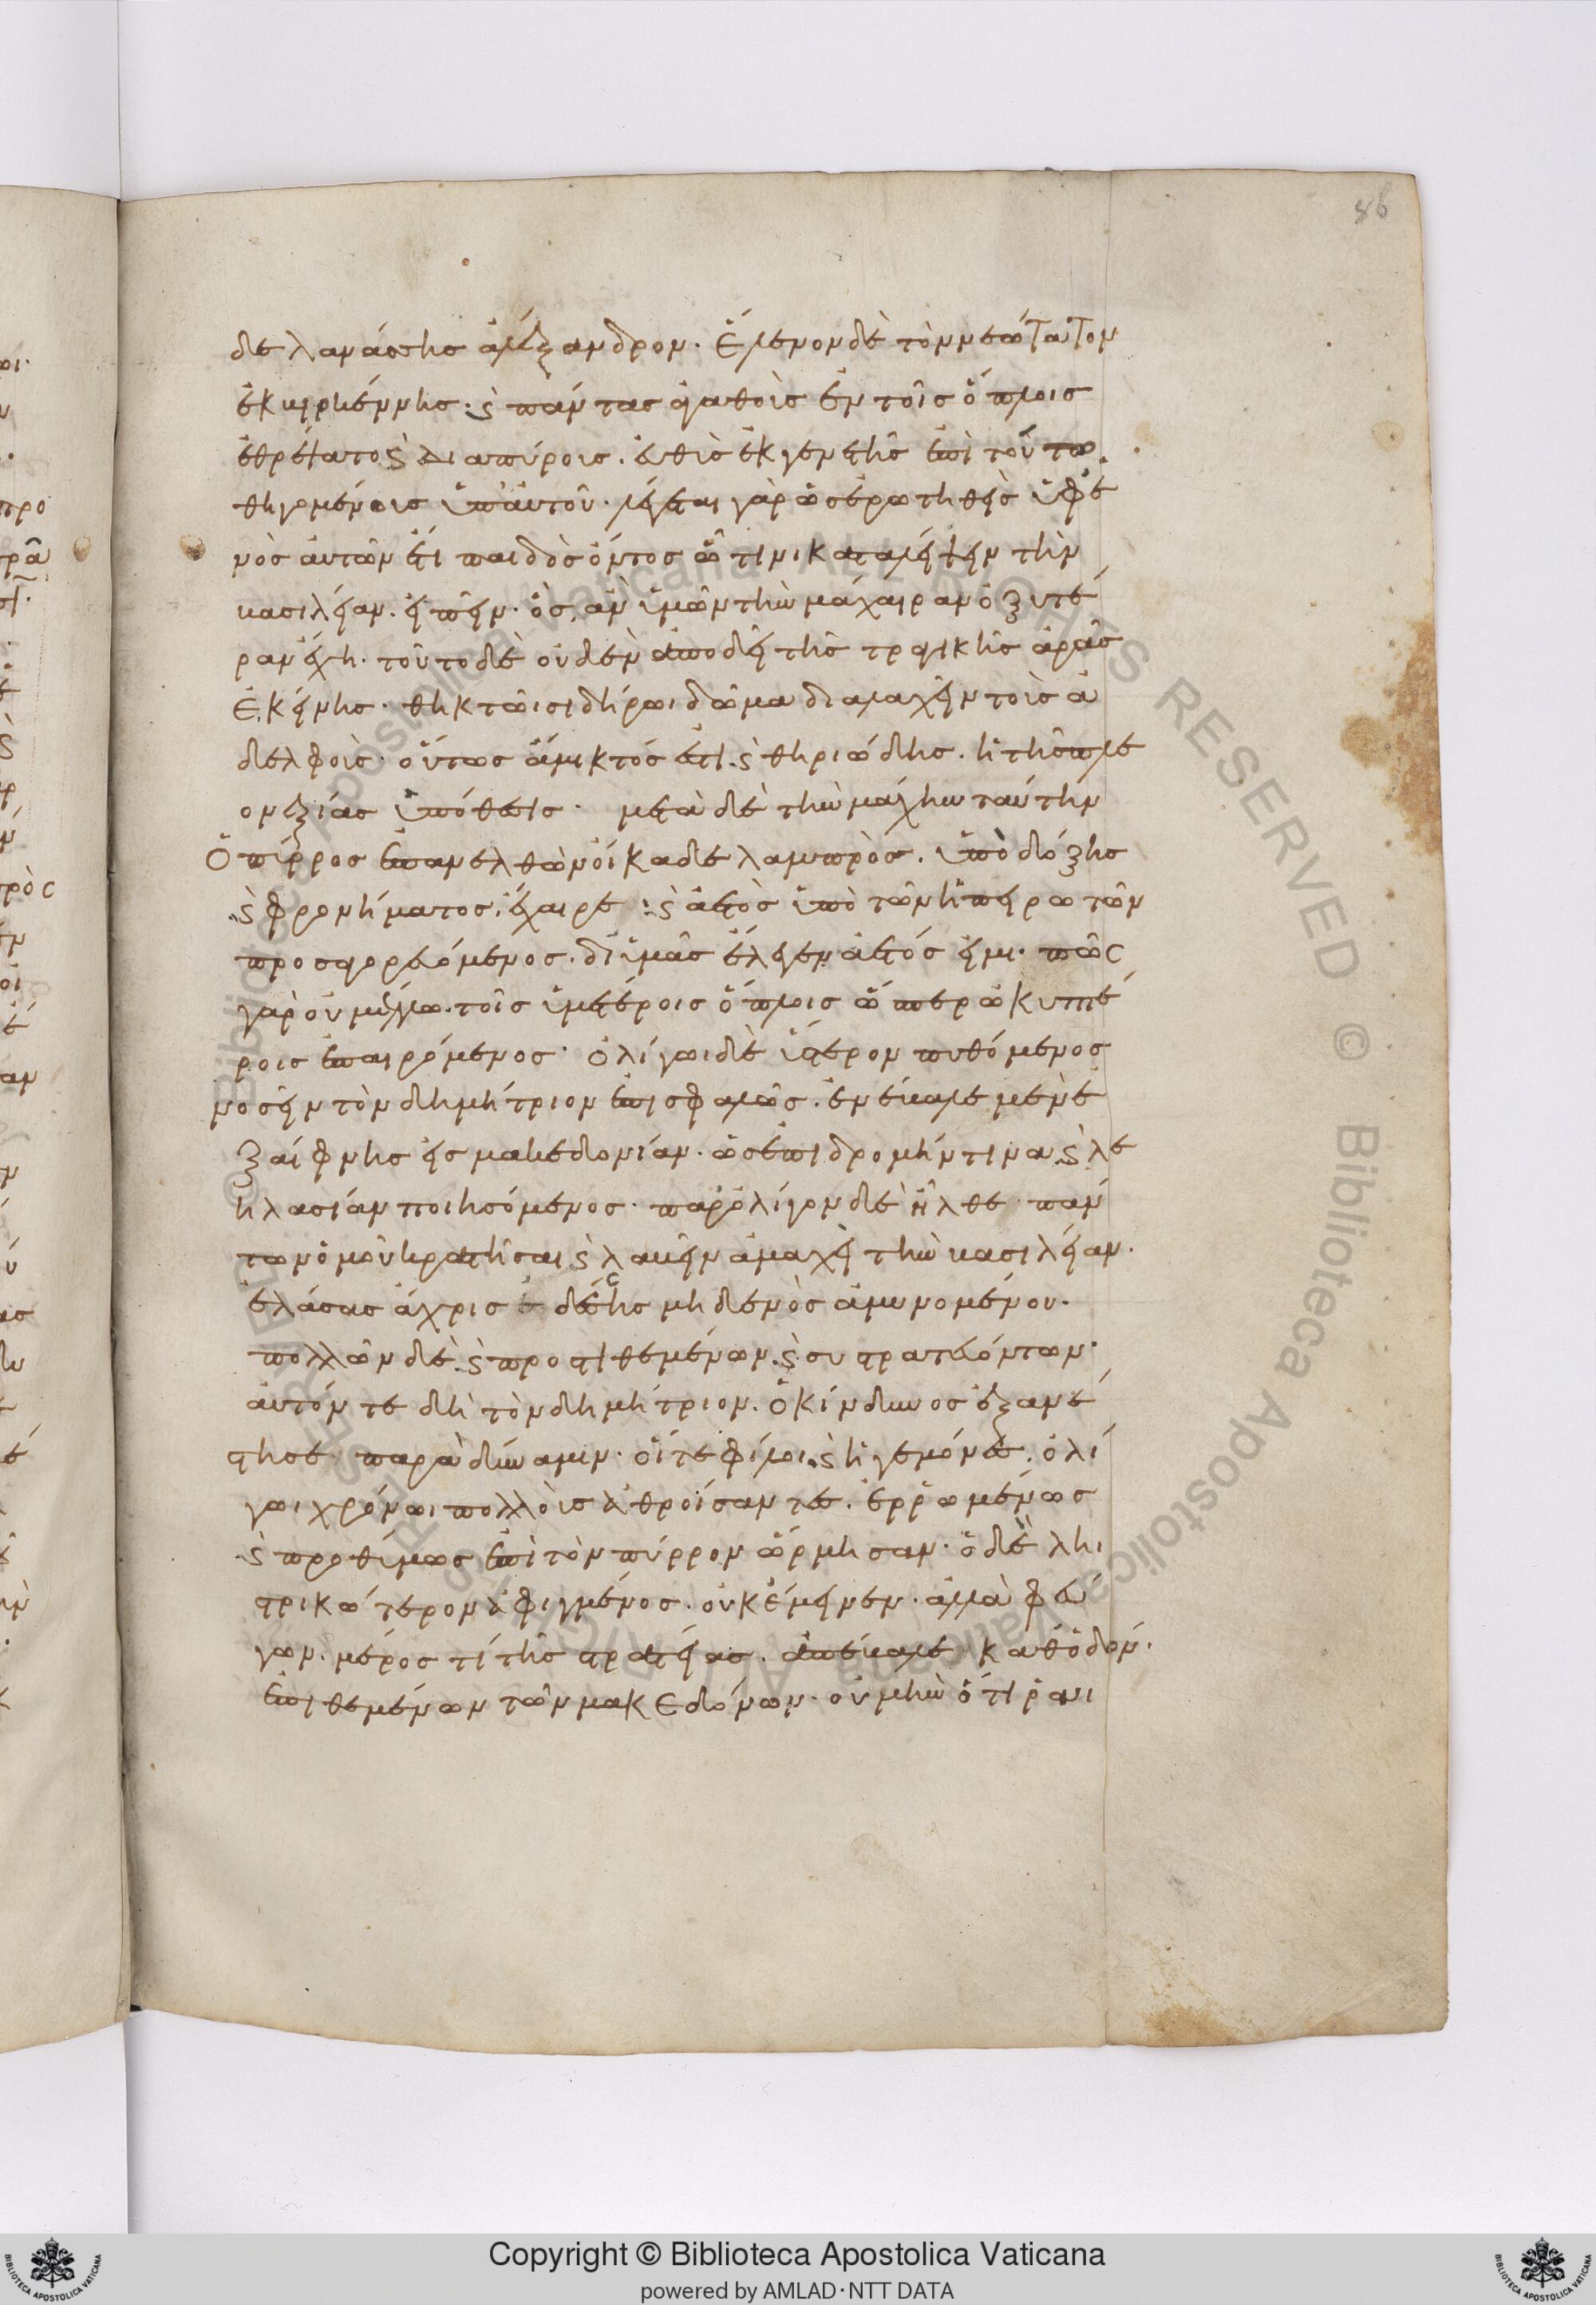 86
δὲ λανάσσης ἀλέξανδρον. ἕλενον δὲ τὸν νεώτατον
ἐκ βιρκέννης. καὶ πάντας ἀγαθοὺς ἐν τοῖς ὅπλοις
ἐθρέψατο καὶ διαπύροις. εὐθὺς ἐκ γενετῆς ἐπὶ τοῦτο
θηγομένοις ὑπ' αὐτοῦ. λέγεται γὰρ ὡς ἐρωτηθεὶς ὑφ' ἑ
νὸς αὐτῶν ἔτι παιδὸς ὄντος ᾧ τινι καταλείψειν τὴν
βασιλείαν. εἰπεῖν. ὃς ἂν ὑμῶν τὴν μάχαιραν ὀξυτέ
ραν ἔχη. τοῦτο δὲ οὐδὲν ἀποδεῖ τῆς τραγικῆς ἀρᾶς
ἐκείνης. θηκτῶι σιδήρωι δῶμα διαλαχεῖν τοὺς ἀ
δελφούς. οὕτως ἄμικτός ἐστι καὶ θηριώδης. ἡ τῆς πλε
ονεξίας ὑπόθεσις. μετὰ δὲ τὴν μάχην ταύτην
ὁ πύρρος ἐπανελθὼν οἴκαδε λαμπρὸς. ὑπὸ δόξης
καὶ φρονήματος. ἔχαιρε. καὶ ἀετὸς ὑπὸ τῶν ἠπειρωτῶν
προσαγορευόμενος. δι' ὑμᾶς ἔλεγεν ἀετός εἰμι. πῶς
γὰρ οὐ μέλλω. τοῖς ὑμετέροις ὅπλοις ὥσπερ ὠκυπτέ
ροις ἐπαιρόμενος. ὀλίγωι δὲ ὕστερον πυθόμενος
νοσεῖν τὸν δημήτριον ἐπισφαλῶς. ἐνέβαλε μὲν ἐ
ξαίφνης εἰς μακεδονίαν. ὡς ἐπιδρομήν τινα καὶ λε
ηλασίαν ποιησόμενος. παρ' ὀλίγον δὲ ἦλθε. πάν
των ὁμοῦ κρατῆσαι καὶ λαβεῖν ἀμαχεὶ τὴν βασιλείαν.
ἐλάσας ἄχρις ἐδέσσης μηδενὸς ἀμυνομένου.
πολλῶν δὲ καὶ προστιθεμένων. καὶ συστρατευόντων.
αὐτόν τε δὴ τὸν δημήτριον. ὁ κίνδυνος ἐξανέ
στησε παρὰ δύναμιν. οἵ τε φίλοι καὶ ἡγεμόνες. ὀλί
γωι χρόνωι πολλοὺς ἀθροίσαντες. ἐρρωμένως
καὶ προθύμως ἐπὶ τὸν πύρρον ὥρμησαν. ὁ δὲ λῃ
στρικώτερον ἀφιγμένος. οὐκ ἔμεινεν. ἀλλὰ φεύ
γων. μέρος τι τῆς στρατείας. ἀπέβαλε καθ' ὁδόν.
ἐπιθεμένων τῶν μακεδόνων. οὐ μὴν ὅτι ῥαι
Copyright © Biblioteca Apostolica Vaticana
powered by AMLAD·NTT DATA